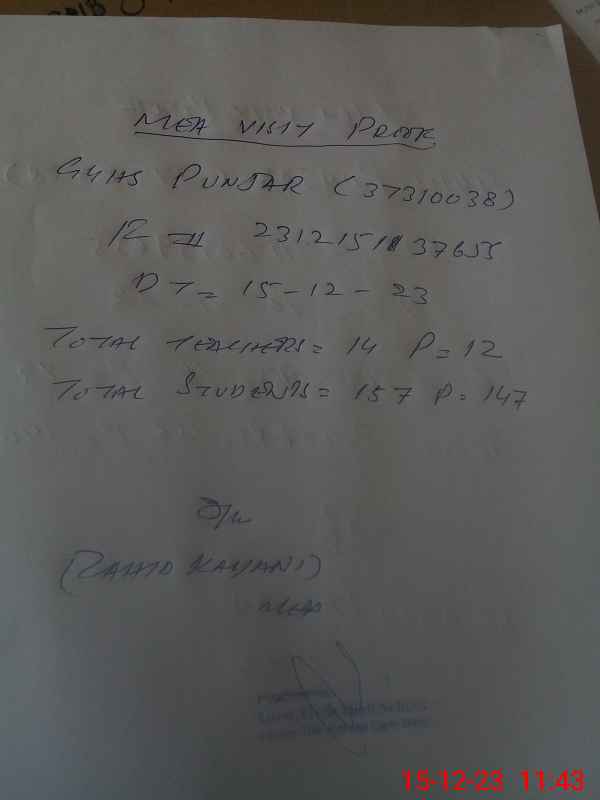 MEA VISIT PROOF
GGHS PUNJAR (37310038)
DT = 15-12-23
TOTAL TEACHERS = 14 P = 12
TOTAL STUDENTS = 157 P = 147
(ZAHID KAYANI)
MEA
15-12-23 11:43